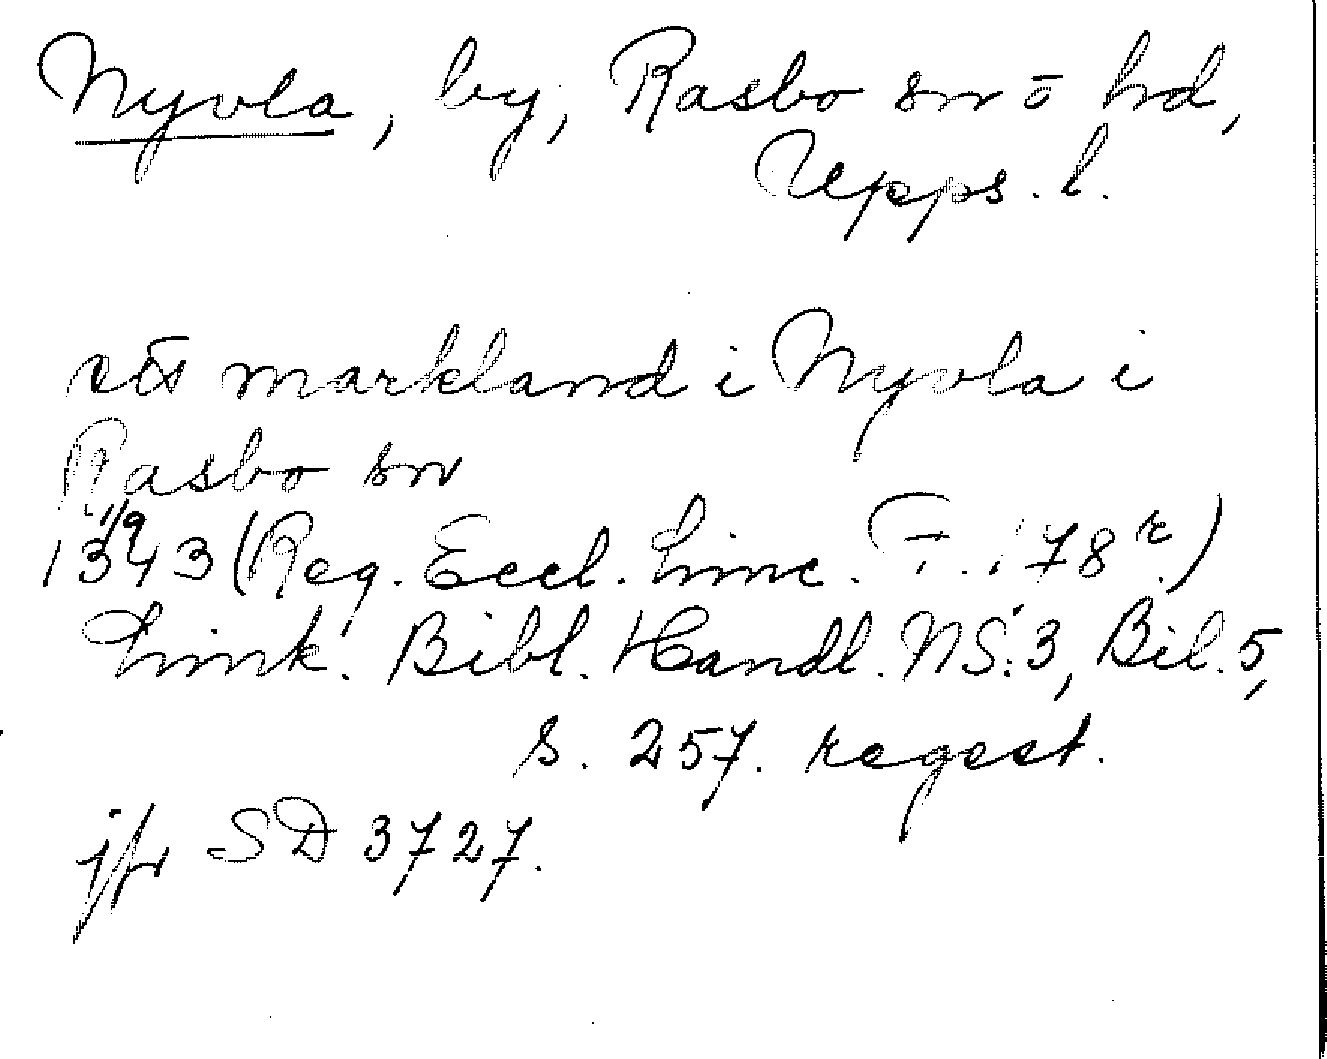 Nyvla, by, Rasbo sn o hd,
Upps. l.
ett markland i Nyvla i
Rasbo sn
1/9
1343 (Reg. Eccl. Linc. F. 178 r.)
Link. Bibl. Handl. NS. 3, Bil. 5,
s. 257. regest.
jfr SD 3727.